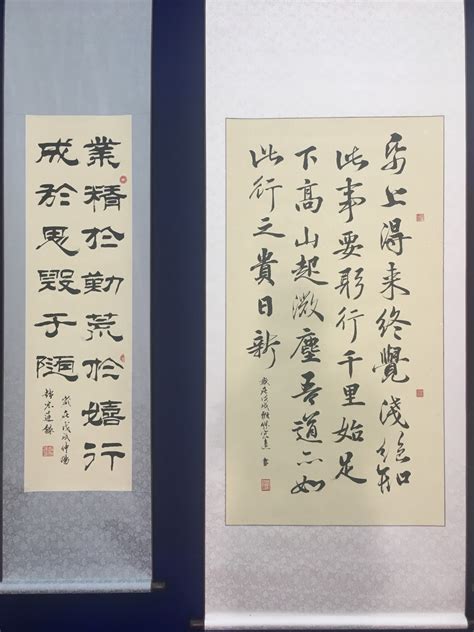 紙上得来終覺淺絕知
此事要躬行千里始足
下高山起微塵吾道亦如
此行之貴日新
歲在戊戌
書
業精於勤荒於嬉行
成於思毀于隨
歲在戊戌仲陽